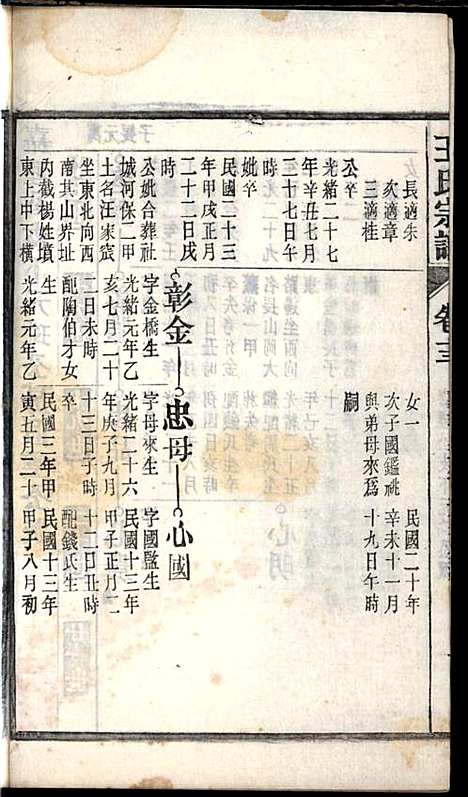 王氏宗譜
卷三
女長適朱
次適章
三適桂
公卒
光緒二十七
年辛丑七月
二十七日午
時
妣卒
民國二十三
年甲戌正月
二十二日戌
時
公妣合葬社
城河保二甲
土名汪家
坐東北向西
南其山界址
丙戴楊姓墳
東上中下橫
彰金
字金橋生
光緒元年乙
亥七月二十
二日未時
配陶伯才女
生
光緒元年乙
女一
次子國鑑祧
與弟母來為
嗣
忠母
字母來生
光緒二十六
年庚子九月
十三日子時
卒
民國三年甲
寅五月二十
民國二十年
辛未十一月
十九日午時
心國
字國監生
民國十三年
甲子正月二
十二日丑時
配錢氏生
民國十三年
甲子八月初